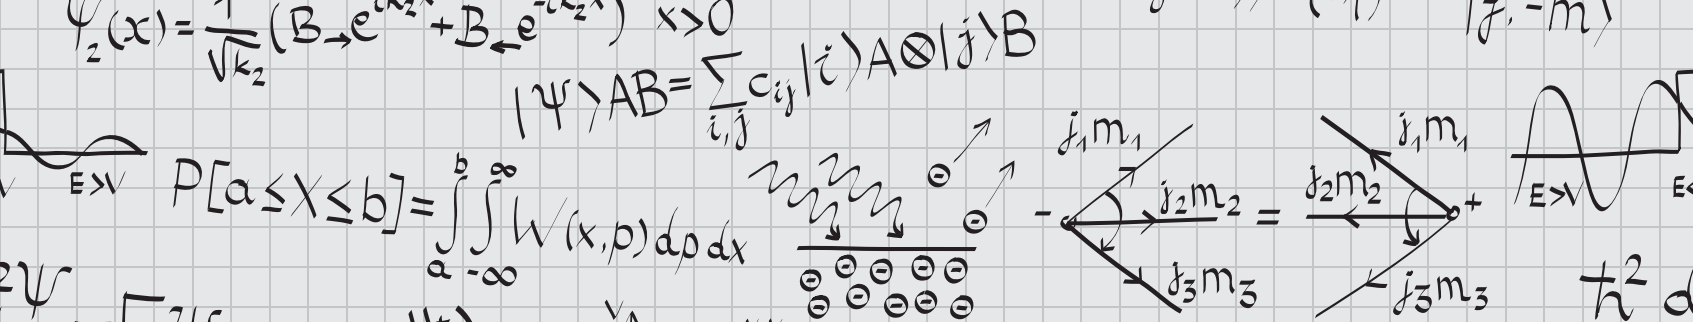 ψ₂(x) = 1/√k₂ (B→e^{ik₂x} + B←e^{-ik₂x}) x>0
|j,-m⟩
|Ψ⟩AB = ∑_{i,j} c_{ij} |i⟩A⊗|j⟩B
E>V
P[a≤X≤b] = ∫_a^b ∫_{-∞}^{∞} W(x,p) dp dx
⊖
⊖
⊖ ⊖ ⊖ ⊖ ⊖
⊖ ⊖ ⊖ ⊖ ⊖
j₁m₁
- j₂m₂ =
j₃m₃
j₁m₁
j₂m₂ +
j₃m₃
E>V
E<
²Ψ
ħ² d